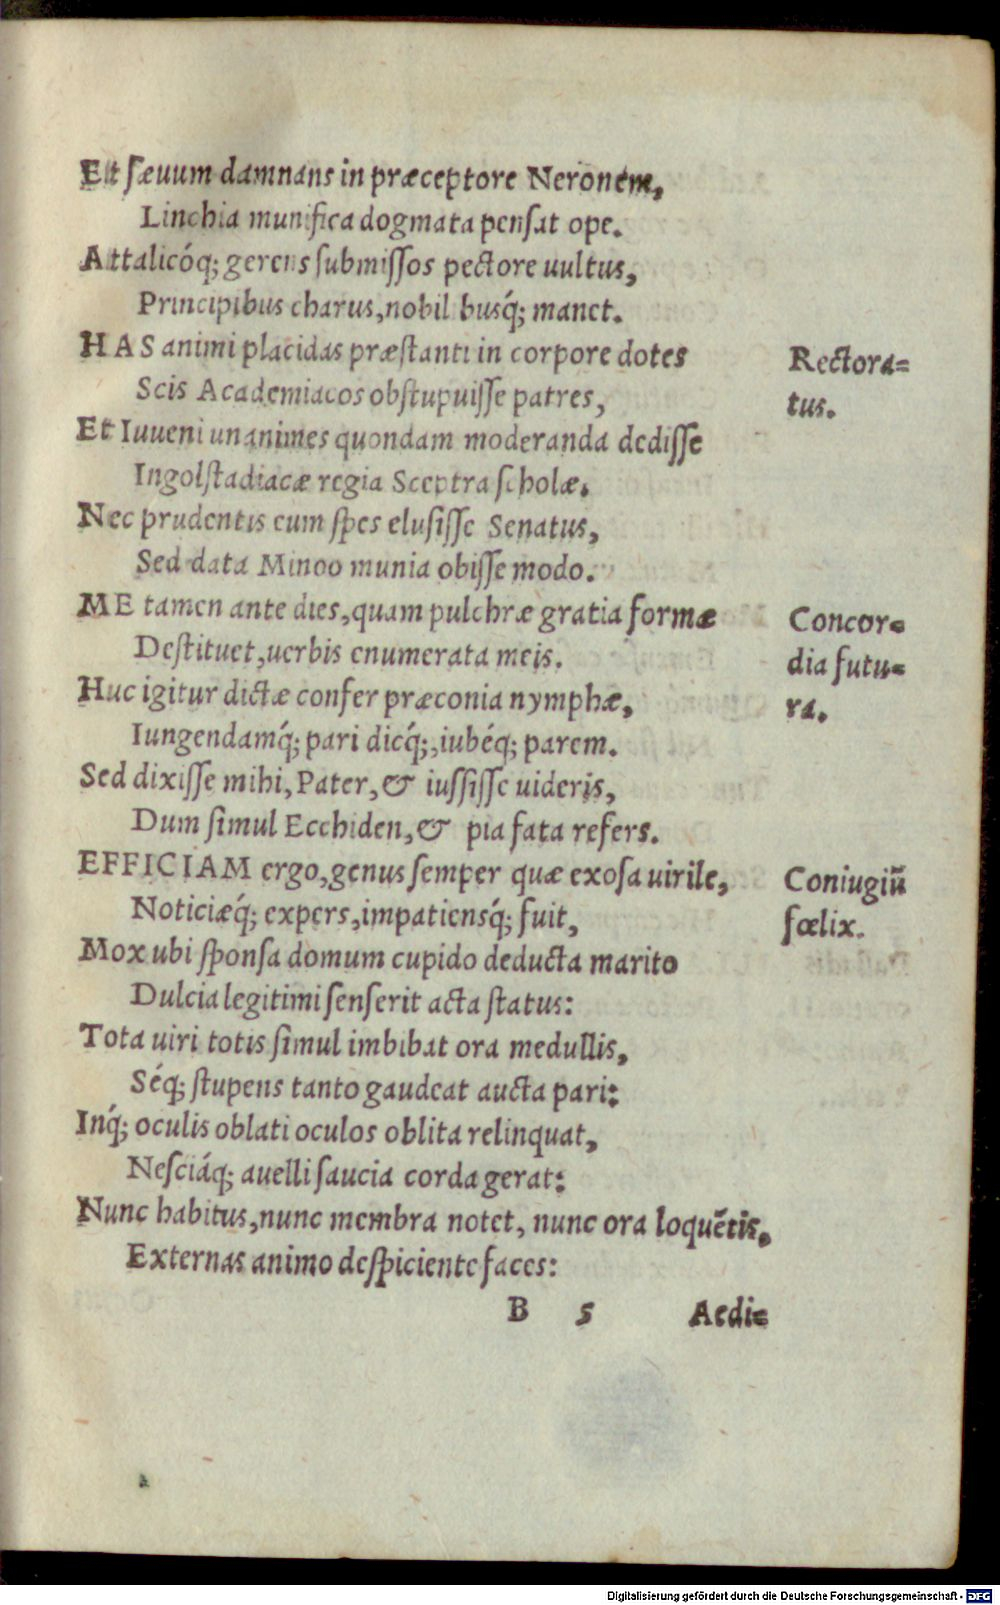 Et sæuum damnans in præceptore Neronem,
Linchia munifica dogmata pensat ope.
Attalicóq; gerens submissos pectore uultus,
Principibus charus, nobilibusq́; manet.
HAS animi placidas præstanti in corpore dotes
Rectora=
Scis Academiacos obstupuisse patres,
tus.
Et Iuueni unanimes quondam moderanda dedisse
Ingolstadiacæ regia Sceptra scholæ.
Nec prudentis eum spes elusisse Senatus,
Sed data Minoo munia obisse modo.
ME tamen ante dies, quam pulchræ gratia formæ
Concor=
Destituet, uerbis enumerata meis.
dia futu=
Huc igitur dictæ confer præconia nymphæ,
ra.
Iungendamq́; pari dicq́;, iubéq; parem.
Sed dixisse mihi, Pater, & iussisse uideris,
Dum simul Ecchiden, & pia fata refers.
EFFICIAM ergo, genus semper quæ exosa uirile,
Coniugiū
Noticiæq́; expers, impatiensq́; fuit,
fœlix.
Mox ubi sponsa domum cupido deducta marito
Dulcia legitimi senserit acta status:
Tota uiri totis simul imbibat ora medullis,
Séq; stupens tanto gaudeat aucta pari:
Inq́; oculis oblati oculos oblita relinquat,
Nesciáq; auelli saucia corda gerat:
Nunc habitus, nunc membra notet, nunc ora loquētis,
Externas animo despiciente faces:
B 5 Aedi=
Digitalisierung gefördert durch die Deutsche Forschungsgemeinschaft - DFG